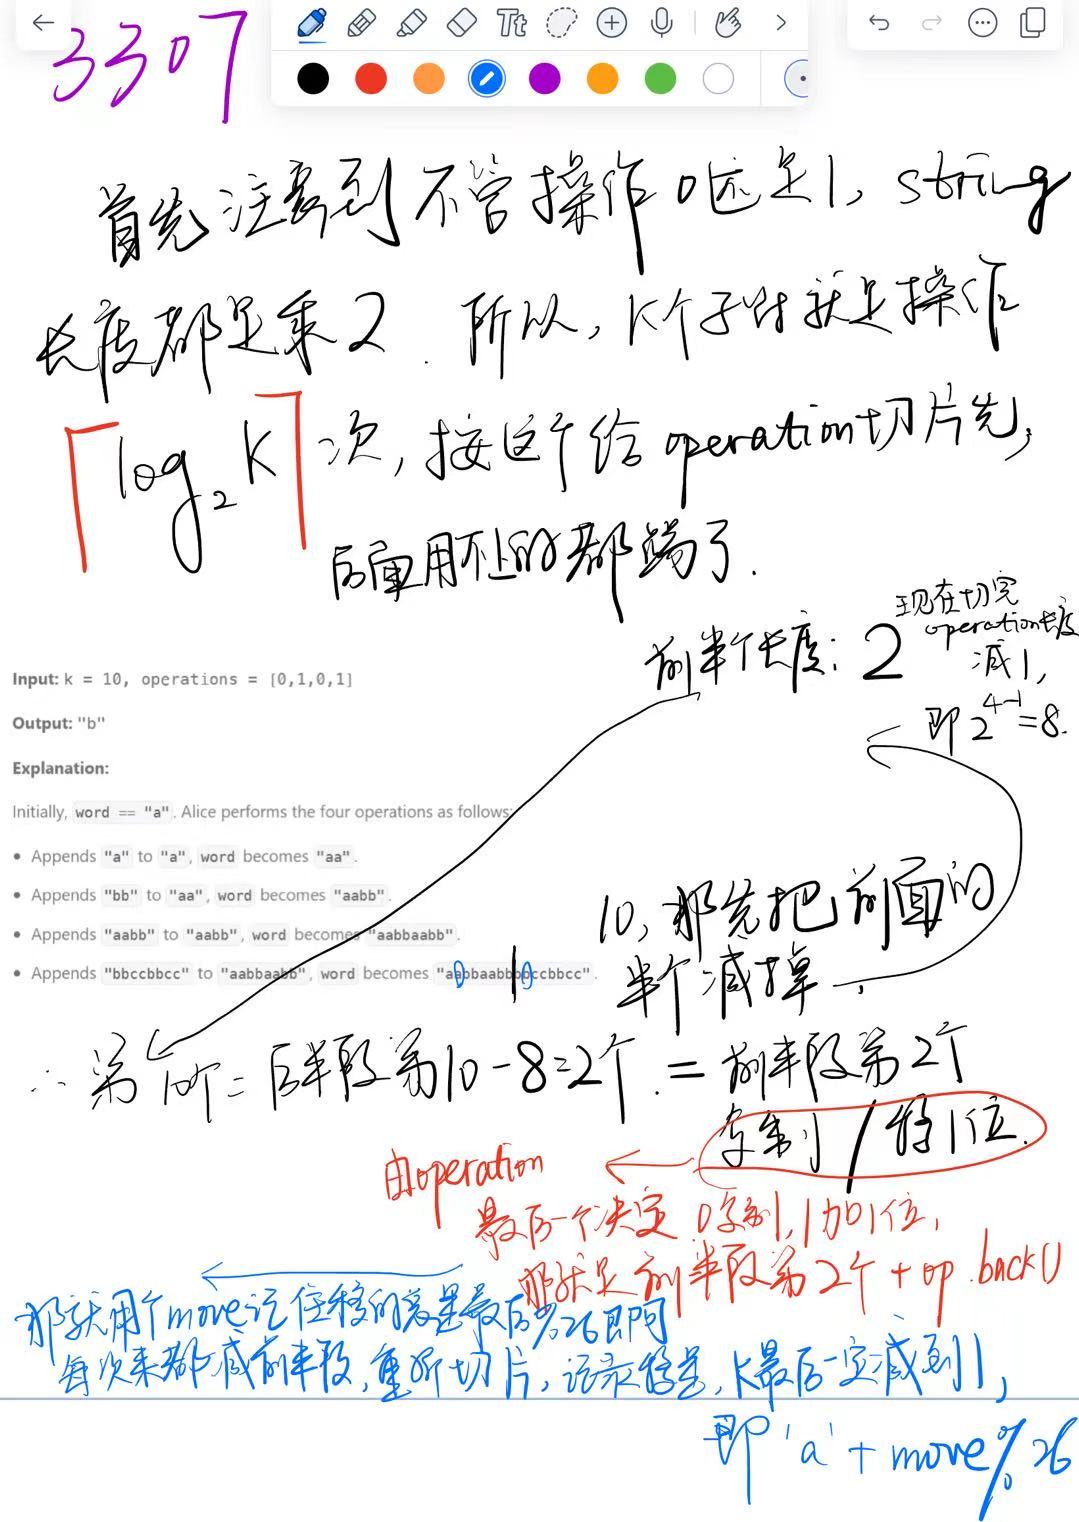 3307
Tt
首先注意到不管操作0还是1, string
长度都是乘2. 所以, K个子母就是操作
⌈log₂K⌉次, 按这个给operation切片先,
后面用不上的都踹了.
前半个长度: 2^现在切完operation长度减1,
即2^4-1=8.
Input: k = 10, operations = [0,1,0,1]
Output: "b"
Explanation:
Initially, word == "a". Alice performs the four operations as follows:
• Appends "a" to "a", word becomes "aa".
• Appends "bb" to "aa", word becomes "aabb".
• Appends "aabb" to "aabb", word becomes "aabbaabb".
• Appends "bbccbbcc" to "aabbaabb", word becomes "aabbaabbbbccbbcc".
10, 那先把前面的
半个减掉.
∴ 第10个=后半段第10-8=2个.=前半段第2个
复制/移1位.
由operation
最后一个决定 0复制, 1加1位,
那就是前半段第2个+op.back()
那就用个move记住移的总量最后%26即可
每次来都减前半段, 重新切片, 记录移量, K最后一定减到1,
即'a'+move%26